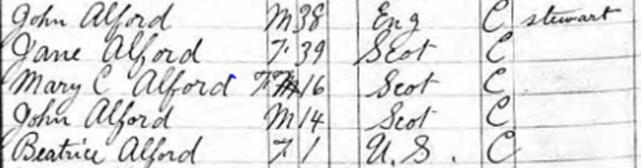 John Alford M 38 Eng C stewart
Jane Alford F 39 Scot C
Mary C Alford F 16 Scot C
John Alford M 14 Scot C
Beatrice Alford F 1 U.S. C